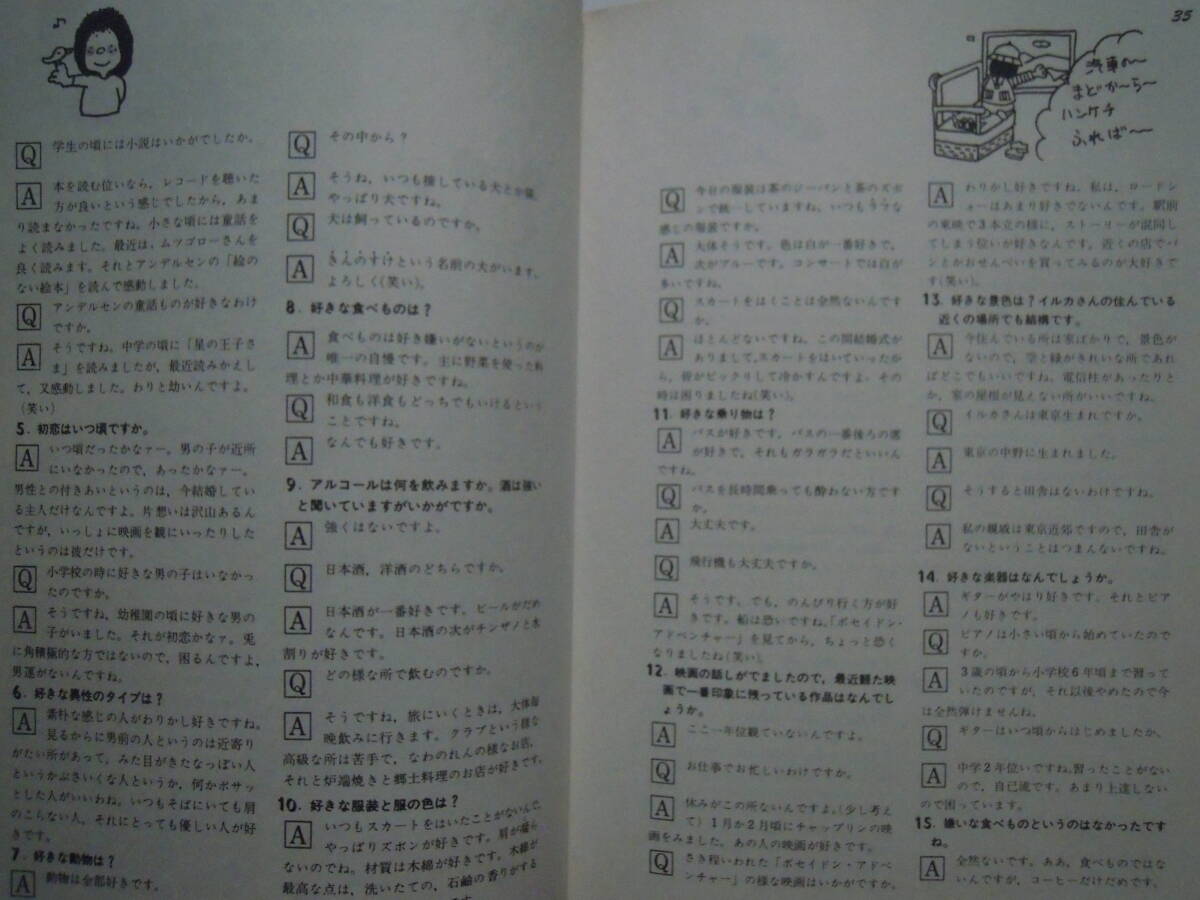 Q 学生の頃には小説はいかがでしたか。
A 本を読む位いなら、レコードを聴いた
方が良いという感じでしたから、あま
り読まなかったですね。小さな頃には童話を
よく読みました。最近は、ムツゴローさんを
良く読みます。それとアンデルセンの「絵の
ない絵本」を読んで感動しました。
Q アンデルセンの童話ものが好きなわけ
ですか。
A そうですね。中学の頃に「星の王子さ
ま」を読みましたが、最近読みかえし
て、又感動しました。わりと幼いんですよ。
(笑い)
5. 初恋はいつ頃ですか。
A いつ頃だったかなァー。男の子が近所
にいなかったので、あったかなァー。
男性との付きあいというのは、今結婚してい
る主人だけなんですよ。片想いは沢山あるん
ですが、いっしょに映画を観にいったりした
というのは彼だけです。
Q 小学校の時に好きな男の子はいなかっ
たのですか。
A そうですね、幼稚園の頃に好きな男の
子がいました。それが初恋かなァ。兎
に角積極的な方ではないので、困るんですよ、
男運がないんですね。
6. 好きな異性のタイプは？
A 素朴な感じの人がわりかし好きですね。
見るからに男前の人というのは近寄り
がたい所があって、みた目がきたなっぽい人
というかぶさいくな人というか、何かボサッ
とした人がいいわね。いつもそばにいても肩
のこらない人、それにとっても優しい人が好
きです。
7. 好きな動物は？
A 動物は全部好きです。
Q その中から？
A そうね、いつも接している犬とか猫、
やっぱり犬ですね。
Q 犬は飼っているのですか。
A きんのすけという名前の犬がいます、
よろしく(笑い)。
8. 好きな食べものは？
A 食べものは好き嫌いがないというのが
唯一の自慢です。主に野菜を使った料
理とか中華料理が好きですね。
Q 和食も洋食もどっちでもいけるという
ことですね。
A なんでも好きです。
9. アルコールは何を飲みますか。酒は強い
と聞いていますがいかがですか。
A 強くはないですよ。
Q 日本酒、洋酒のどちらですか。
A 日本酒が一番好きです。ビールがだめ
なんです。日本酒の次がチンザノと水
割りが好きです。
Q どの様な所で飲むのですか。
A そうですね、旅にいくときは、大体毎
晩飲みに行きます。クラブという様な
高級な所は苦手で、なわのれんの様なお店、
それと炉端焼きと郷土料理のお店が好きです。
10. 好きな服装と服の色は？
A いつもスカートをはいたことがないんで、
やっぱりズボンが好きです。肩が凝ら
ないのでね。材質は木綿が好きです。木綿が
最高な点は、洗いたての、石鹸の香りがする
35
汽車の〜
まどか〜ら〜
ハンケチ
ふれば〜
Q 今日の服装は茶のジーパンと茶のズボ
ンで統一していますね、いつもラフな
感じの服装ですか。
A 大体そうです。色は白が一番好きで、
次がブルーです。コンサートでは白が
多いですね。
Q スカートをはくことは全然ないんです
か。
A ほとんどないですね。この間結婚式が
ありまして、スカートをはいていったか
ら、皆がビックリして冷かすんですよ。その
時は困りましたね(笑い)。
11. 好きな乗り物は？
A バスが好きです。バスの一番後ろの席
が好きで、それもガラガラだといいん
ですね。
Q バスを長時間乗っても酔わない方です
か。
A 大丈夫です。
Q 飛行機も大丈夫ですか。
A そうです。でも、のんびり行く方が好
きです。船は恐いですね。「ポセイドン・
アドベンチャー」を見てから、ちょっと恐く
なりましたね(笑い)。
12. 映画の話しがでましたので、最近観た映
画で一番印象に残っている作品はなんでし
ょうか。
A ここ一年位観ていないんですよ。
Q お仕事でお忙しいわけですか。
A 休みがこの所ないんですよ。(少し考え
て) 1月か2月頃にチャップリンの映
画をみました。あの人の映画が好きです。
Q さき程いわれた「ポセイドン・アドベ
ンチャー」の様な映画はいかがですか。
A わりかし好きですね。私は、ロードシ
ョーはあまり好きでないんです。駅前
の東映で3本立の様に、ストーリーが混同し
てしまう位いが好きなんです。近くの店でパ
ンとかおせんべいを買ってみるのが大好きで
す(笑い)。
13. 好きな景色は？イルカさんの住んでいる
近くの場所でも結構です。
A 今住んでいる所は家ばかりで、景色が
ないので、空と緑がきれいな所であれ
ばどこでもいいですね。電信柱があったりと
か、家の屋根が見えない所がいいですね。
Q イルカさんは東京生まれですか。
A 東京の中野に生まれました。
Q そうすると田舎はないわけですね。
A 私の親戚は東京近郊ですので、田舎が
ないということはつまんないですね。
14. 好きな楽器はなんでしょうか。
A ギターがやはり好きです。それとピア
ノも好きです。
Q ピアノは小さい頃から始めていたので
すか。
A 3歳の頃から小学校6年頃まで習って
いたのですが、それ以後やめたので今
は全然弾けませんね。
Q ギターはいつ頃からはじめましたか。
A 中学2年位いですね。習ったことがない
ので、自己流です。あまり上達しない
ので困っています。
15. 嫌いな食べものというのはなかったです
ね。
A 全然ないです。ああ、食べものではな
いんですが、コーヒーだけだめです。